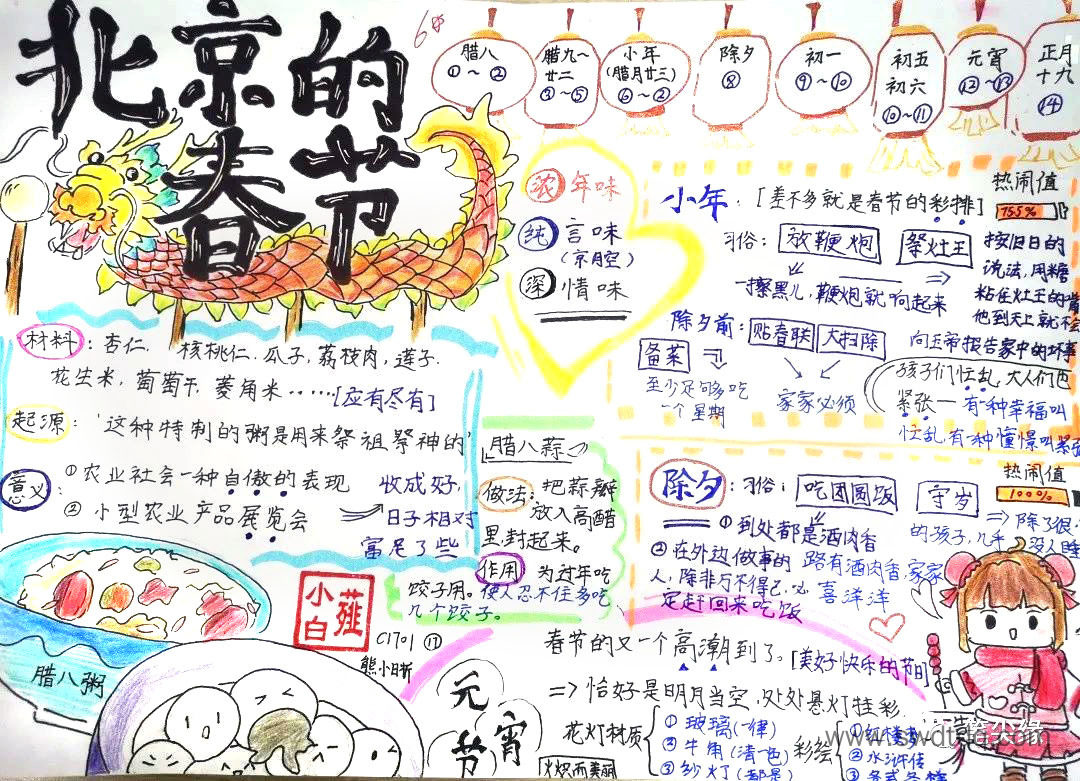 北京的
春节
6木
腊八
①~②
腊九~
廿二
③~⑤
小年
(腊月廿三)
⑥~②
除夕
⑧
初一
⑨~⑩
初五
初六
⑩~⑪
元宵
⑫~⑬
正月
十九
⑭
浓 年味
纯 言味
(京月空)
深 情味
材料：杏仁、核桃仁.瓜子.荔枝肉,莲子.
花生米,葡萄干,菱角米……[应有尽有]
起源：这种特制的粥是用来祭祖祭神的
意义：①农业社会一种自傲的表现
②小型农业产品展览会
收成好,
日子相对
富足了些
腊八粥
小白
薤
C1701 ⑰
熊小昕
腊八蒜
做法：把蒜瓣
放入高醋
里封起来。
作用 为过年吃
饺子用。使人忍不住多吃
几个饺子。
小年：[差不多就是春节的彩排]
热闹值
155%
习俗：放鞭炮 祭灶王
一擦黑儿,鞭炮就响起来
按旧日的
说法,用糖
粘住灶王的嘴
他到天上就不会
向玉帝报告家中的坏事
除夕前：贴春联 大扫除
备菜
至少足够吃
一个星期
家家必须
孩子们忙乱,大人们也
紧张一有一种幸福叫
忙乱,有一种憧憬叫紧张
除夕：习俗：吃团圆饭 守岁
热闹值
100%
①到处都是酒肉香
②在外边做事的
人,除非万不得已,必
定赶回来吃饭
路有酒肉香,家家
喜洋洋
除了很小
的孩子,几乎没人睡
元宵节
春节的又一个高潮到了。[美好快乐的节日]
=>恰好是明月当空,处处悬灯挂彩,
火炽而美丽
花灯材质
①玻璃(一律)
②牛角(清一色)
③纱灯(都是)
彩绘
①红楼梦
②水浒传
③各式各样
www.swdtfd.com